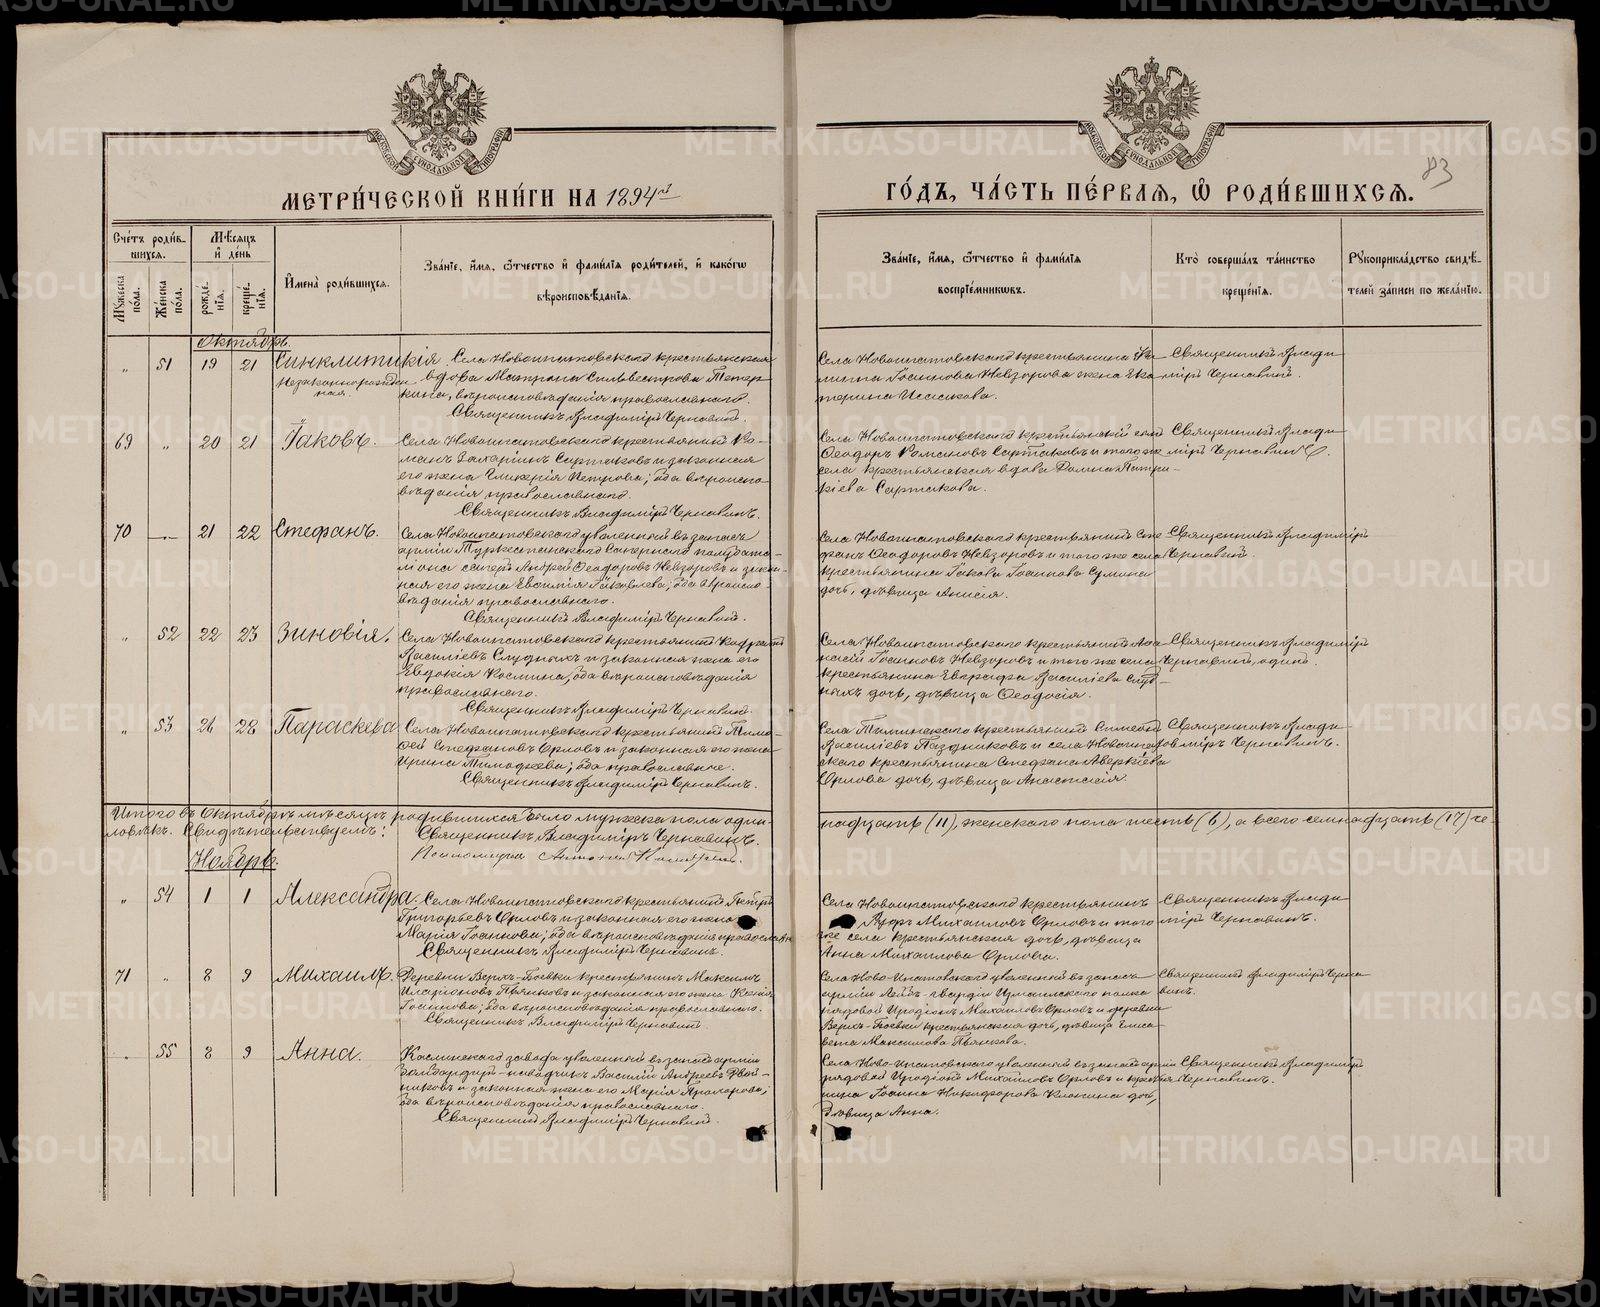 МЕТРИ́ЧЕСКОЙ КНИ́ГИ НА 1894й
ГО́ДЪ, ЧА́СТЬ ПЕ́РВАѦ, Ѡ҆ РОДИ́ВШИХСѦ.
83
Сче́тъ роди́в-
шихся.
Мѣ́сяцъ
и҆ де́нь
И҆мена̀ роди́вшихся.
Зва́нїе, и҆́мя, ѻ҆́тчество и҆ фами́лїя роди́телей, и҆ како́гѡ
вѣроисповѣ́данїя.
Зва́нїе, и҆́мя, ѻ҆́тчество и҆ фами́лїя
воспрїе́мниковъ.
Кто̀ соверша́лъ та́инство
креще́нїя.
Рукоприкла́дство свидѣ́-
телей за́писи по жела́нїю.
Мꙋ́жеска
по́ла.
Же́нска
по́ла.
рожде́-
нїя.
креще́-
нїя.
Октябрь.
" 51 19 21 Синклитикія
незаконнорожден
ная.
Села Новоипатовскаго крестьянская
вдова Матрона Сильвестрова Тетер
кина, вѣроисповѣданія православнаго.
Священникъ Владиміръ Чернавинъ.
Села Новоипатовскаго крестьянина
Іоаннова Невзорова жена Ека
терина Исаакова.
Священникъ Влади
міръ Чернавинъ.
69 " 20 21 Іаковъ.
Села Новоипатовскаго крестьянинъ Ро-
манъ Захаріинъ Сартаковъ и законная
его жена Гликерія Петрова; оба вѣроиспо-
вѣданія православнаго.
Священникъ Владиміръ Чернавинъ.
Села Новоипатовскаго крестьянскій сынъ
Ѳеодоръ Романовъ Сартаковъ и того же
села крестьянская вдова Домна Патри-
кіева Сартакова.
Священникъ Влади
міръ Чернавинъ.
70 " 21 22 Стефанъ.
Села Новоипатовскаго уволенный въ запасъ
арміи Туркестанскаго Сапернаго полубата-
ліона саперъ Андрей Ѳеодоровъ Невзоровъ и закон-
ная его жена Евѳимія Іаковлева; оба вѣроиспо-
вѣданія православнаго.
Священникъ Владиміръ Чернавинъ.
Села Новоипатовскаго крестьянинъ Сте
фанъ Ѳеодоровъ Невзоровъ и того же села
крестьянина Іакова Іоаннова Сумина
дочь, дѣвица Анисія.
Священникъ Владиміръ
Чернавинъ.
" 52 22 23 Зиновія.
Села Новоипатовскаго крестьянинъ Кодратъ
Василіевъ Слудныхъ и законная жена его
Евдокія Космина, оба вѣроисповѣданія
православнаго.
Священникъ Владиміръ Чернавинъ.
Села Новоипатовскаго крестьянинъ Аѳа
насій Іоанновъ Невзоровъ и того же села
крестьянина Евграфа Василіева Слуд-
ныхъ дочь, дѣвица Ѳеодосія.
Священникъ Владиміръ
Чернавинъ, одинъ.
" 53 26 28 Параскева.
Села Новоипатовскаго крестьянинъ Тимо-
ѳей Стефановъ Орловъ и законная его жена
Ирина Тимоѳеева; оба православные.
Священникъ Владиміръ Чернавинъ.
Села крестьянинъ Симеонъ
Василіевъ Паздниковъ и села Новоипатов
скаго крестьянина Стефана Аверкіева
Орлова дочь, дѣвица Анастасія.
Священникъ Влади
міръ Чернавинъ.
Итого въ Октябрѣ мѣсяцѣ родившихся было мужеска пола один-
надцать (11), женскаго пола шесть (6), а всего семнадцать (17) че-
ловѣкъ. Свидѣтельствуемъ:
Священникъ Владиміръ Чернавинъ.
Псаломщикъ
Ноябрь.
" 54 1 1 Александра.
Села Новоипатовскаго крестьянинъ Петръ
Григорьевъ Орловъ и законная его жена
Марія Іоаннова; оба вѣроисповѣданія православн
Священникъ Владиміръ Чернавинъ.
Села Новоипатовскаго крестьянинъ
Михаиловъ Орловъ и того
же села крестьянская дочь, дѣвица
Анна Михаилова Орлова.
Священникъ Влади
міръ Чернавинъ.
71 " 8 9 Михаилъ.
Деревни Верхъ-Боевки крестьянинъ Максимъ
Иларіоновъ Пьянковъ и законная его жена Ксенія
Іоаннова; оба вѣроисповѣданія православнаго.
Священникъ Владиміръ Чернавинъ.
Села Ново-Ипатовскаго уволенный въ запасъ
арміи Лейбъ-гвардіи Измаилскаго полка
рядовой Иродіонъ Михаиловъ Орловъ и деревни
Верхъ-Боевки крестьянская дочь, дѣвица Елиса
вета Максимова Пьянкова.
Священникъ Владиміръ Черна
винъ.
" 55 8 9 Анна.
Каслинскаго завода уволенный въ запасъ арміи
бомбардиръ-наводчикъ Василій Андреевъ Двой-
никовъ и законная жена его Марія Прохорова;
оба вѣроисповѣданія православнаго.
Священникъ Владиміръ Чернавинъ.
Села Ново-Ипатовскаго уволенный въ запасъ арміи
рядовой Иродіонъ Михаиловъ Орловъ и крестья
нина Іоанна Никифорова Клюкина дочь,
дѣвица Анна.
Священникъ Владиміръ
Чернавинъ.
METRIKI.GASO-URAL.RU